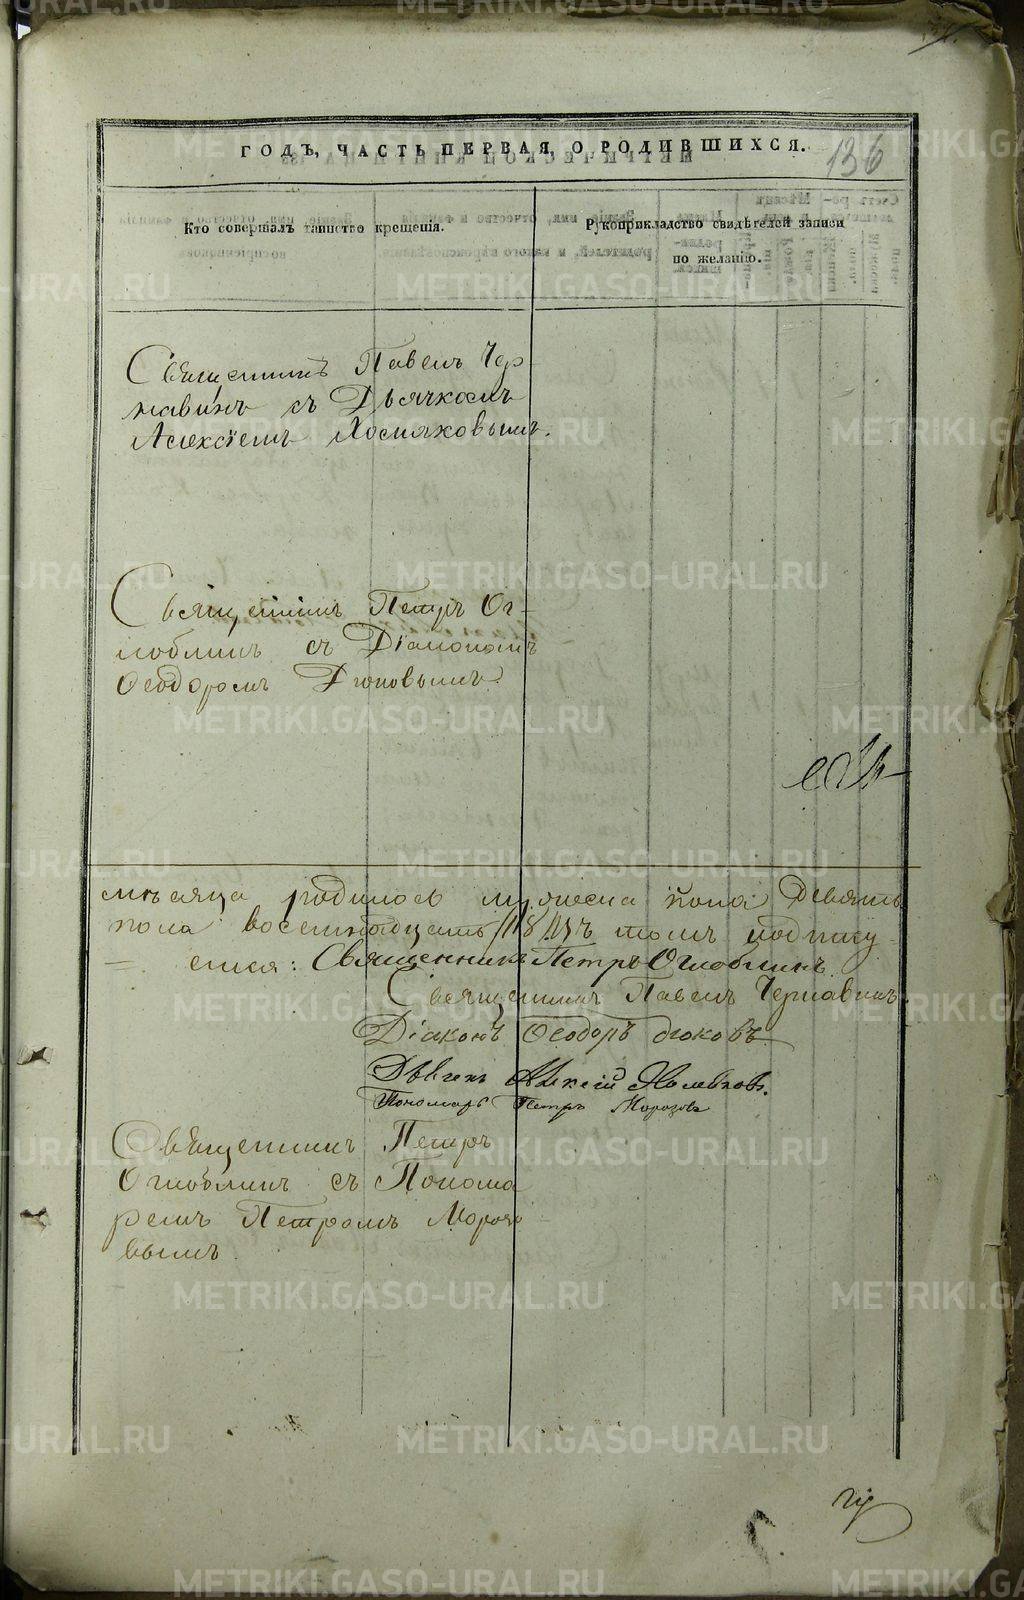 ГОДЪ, ЧАСТЬ ПЕРВАЯ, О РОДИВШИХСЯ.
136
Кто совершалъ таинство крещенія.
Рукоприкладство свидѣтелей записи
по желанію.
Священникъ Павелъ Чер-
навинъ съ Дьячкомъ
Алексіемъ Хомяковымъ.
Священникъ Петръ Ог-
лоблинъ съ Діакономъ
Ѳеодоромъ Дюковымъ.
мѣсяца родилось мужеска пола девять
пола восемнадцать /18/ въ томъ подпису-
емся: Священникъ Петръ Оглоблинъ
Священникъ Павелъ Чернавинъ
Діаконъ Ѳеодоръ Дюковъ
Дьячекъ Алексій Хомяковъ.
Пономарь Петръ Морозовъ
Священникъ Петръ
Оглоблинъ съ Понома
ремъ Петромъ Морозо
вымъ.
METRIKI.GASO-URAL.RU